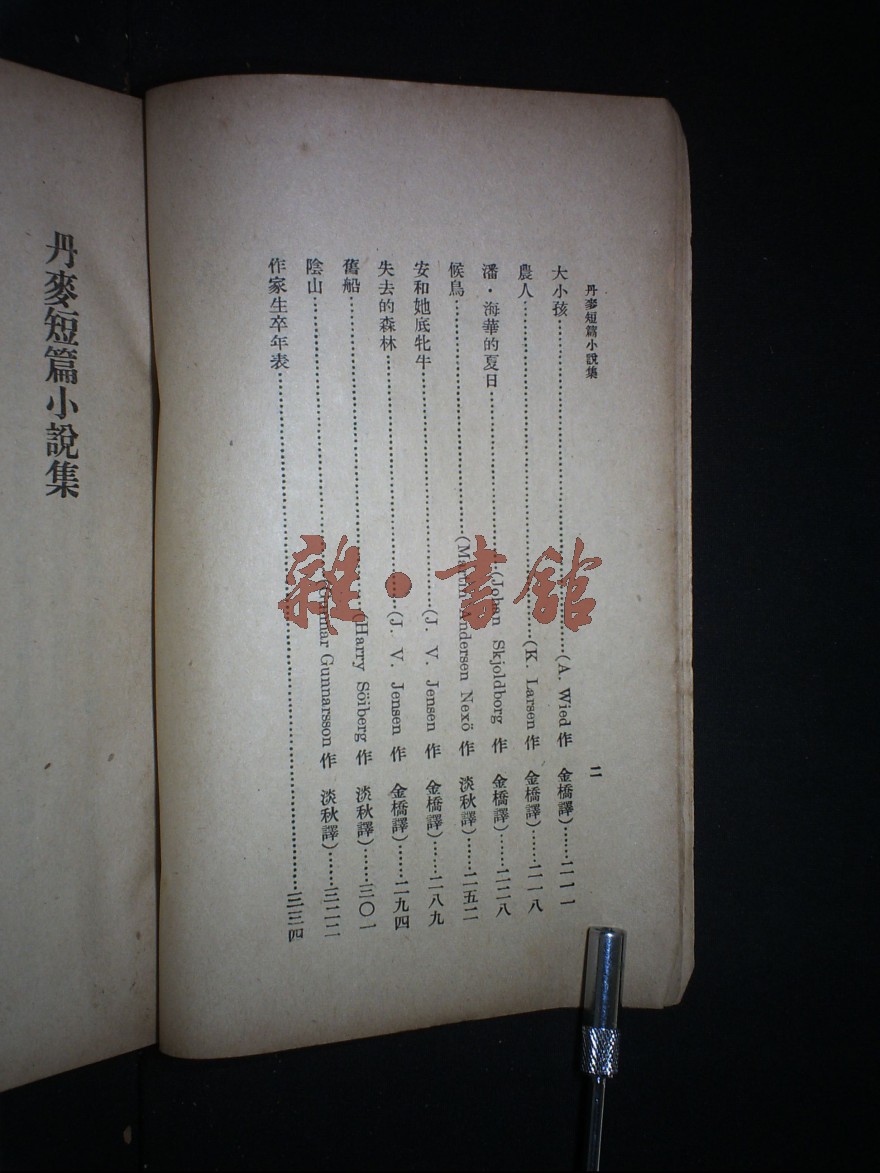 丹麥短篇小說集 二
大小孩……(A. Wied 作 金橋譯)……二一一
農人……(K. Larsen 作 金橋譯)……二一八
潘·海華的夏日……(Johan Skjoldborg 作 金橋譯)……二二八
候鳥……(Martin Andersen Nexö 作 淡秋譯)……二五二
安和她底牝牛……(J. V. Jensen 作 金橋譯)……二八九
失去的森林……(J. V. Jensen 作 金橋譯)……二九四
舊船……(Harry Söiberg 作 淡秋譯)……三〇一
陰山……Gunnarsson 作 淡秋譯)……三二二
作家生卒年表……三三四
丹麥短篇小說集
雜·書館